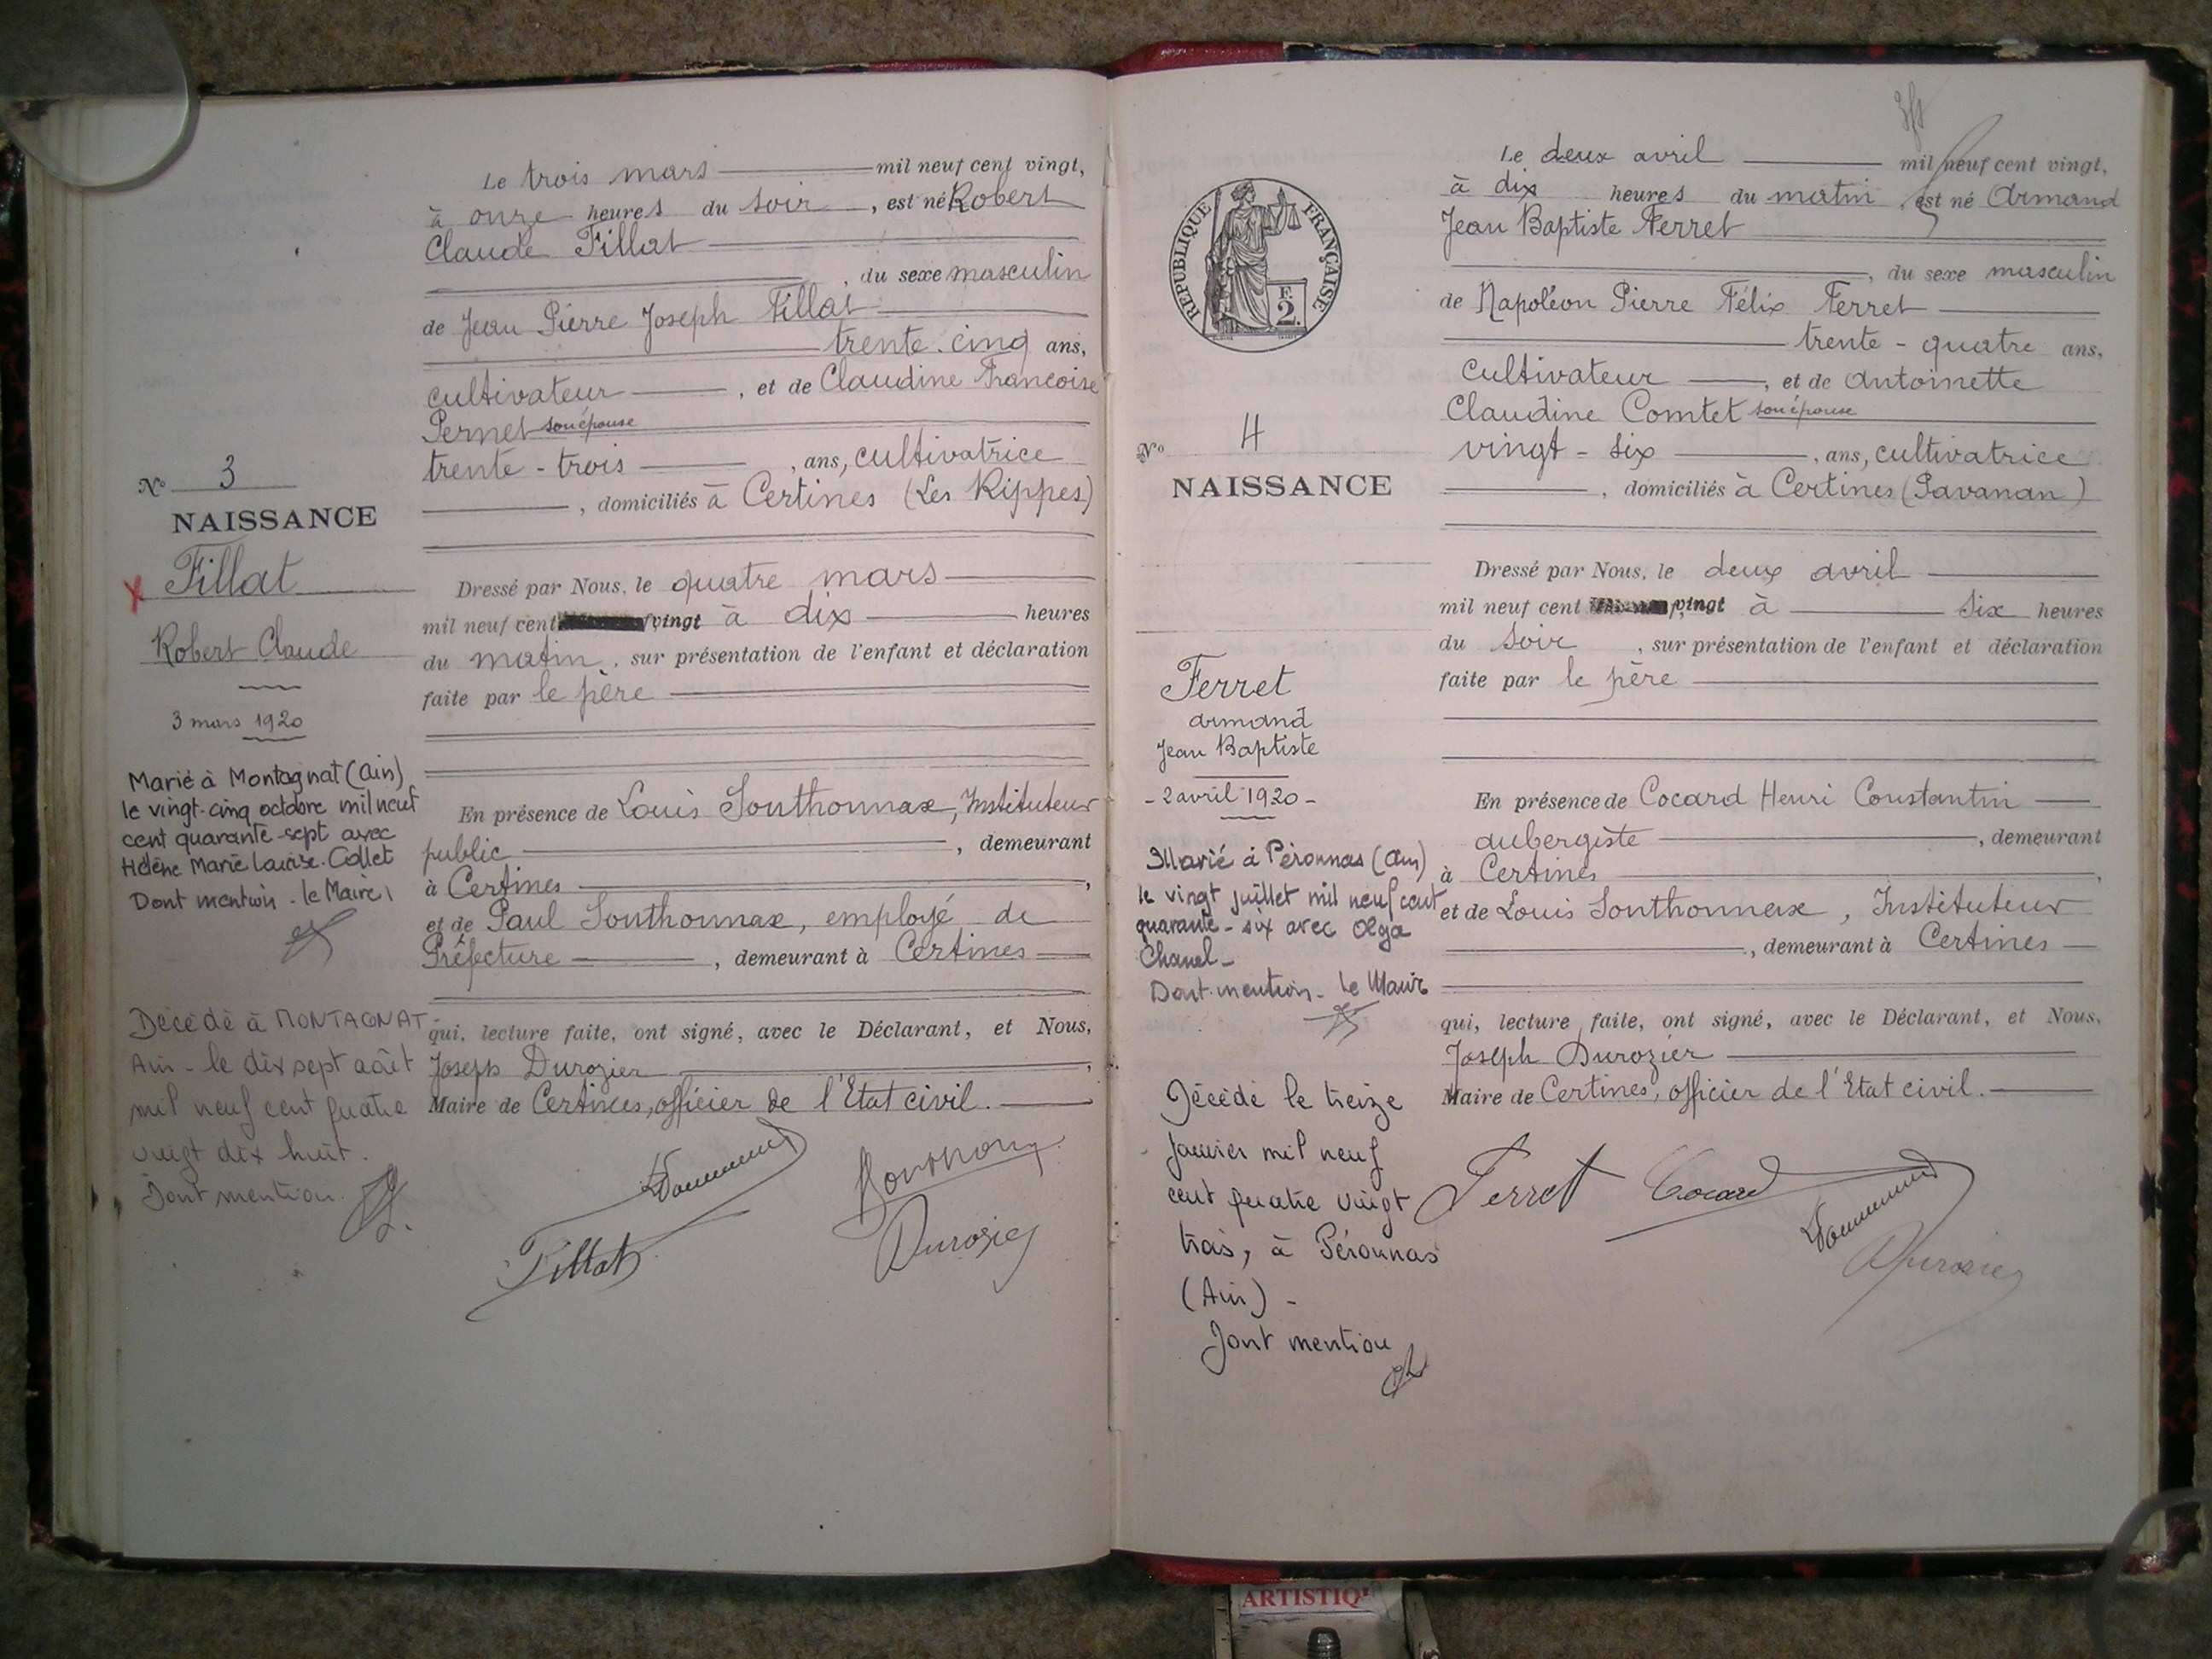 Le trois mars mil neuf cent vingt,
à onze heures du soir, est né Robert
Claude Fillat
, du sexe masculin
de Jean Pierre Joseph Fillat
trente-cinq ans,
cultivateur, et de Claudine Françoise
Pernet son épouse
trente-trois, ans, cultivatrice
, domiciliés à Certines (Les Rippes)
Nº 3
NAISSANCE
Fillat
Robert Claude
3 mars 1920
Marié à Montagnat (Ain)
le vingt-cinq octobre mil neuf
cent quarante-sept avec
Hélène Marie Louise Collet
Dont mention. le Maire,
Décédé à MONTAGNAT
Ain - le dix sept août
mil neuf cent quatre
vingt dix huit.
Dont mention.
Dressé par Nous, le quatre mars
mil neuf cent vingt à dix heures
du matin, sur présentation de l'enfant et déclaration
faite par le père
En présence de Louis Sonthonnax, Instituteur
public, demeurant
à Certines,
et de Paul Sonthonnax, employé de
Préfecture, demeurant à Certines
qui, lecture faite, ont signé, avec le Déclarant, et Nous,
Joseph Durozier,
Maire de Certines, officier de l'Etat civil.
Fillat
Durozier
Le deux avril mil neuf cent vingt,
à dix heures du matin, est né Armand
Jean Baptiste Ferret
, du sexe masculin
de Napoléon Pierre Félix Ferret
trente-quatre ans,
cultivateur, et de Antoinette
Claudine Comtet son épouse
vingt-six, ans, cultivatrice
, domiciliés à Certines (Pavanan)
RÉPUBLIQUE FRANÇAISE
F.
2.
Nº 4
NAISSANCE
Ferret
Armand
Jean Baptiste
- 2 avril 1920 -
Marié à Péronnas (Ain)
le vingt juillet mil neuf cent
quarante-six avec Olga
Chanel -
Dont mention - Le Maire
Décédé le treize
janvier mil neuf
cent quatre vingt
trois, à Péronnas
(Ain) -
Dont mention
Dressé par Nous, le deux avril
mil neuf cent vingt à six heures
du soir, sur présentation de l'enfant et déclaration
faite par le père
En présence de Cocard Henri Constantin
aubergiste, demeurant
à Certines,
et de Louis Sonthonnax, Instituteur
, demeurant à Certines
qui, lecture faite, ont signé, avec le Déclarant, et Nous,
Joseph Durozier
Maire de Certines, officier de l'Etat civil.
Ferret Cocard
Durozier
ARTISTIQ